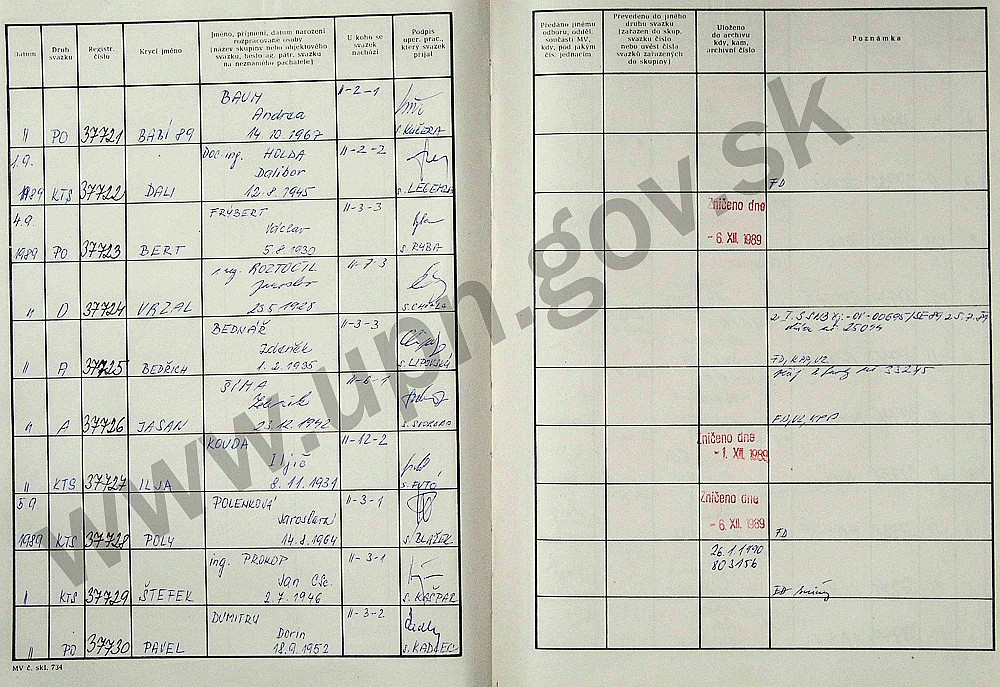 Datum
Druh svazku
Registr. číslo
Krycí jméno
Jméno, příjmení, datum narození
rozpracované osoby
(název skupiny nebo objektového
svazku, heslo ag. patr. svazku
na neznámého pachatele)
U koho se
svazek
nachází
Podpis
oper. prac.,
který svazek
přijal
Předáno jinému
odboru, odděl.
součásti MV,
kdy, pod jakým
čís. jednacím
Převedeno do jiného
druhu svazku
(zařazen do skup.
svazku číslo
nebo uvést čísla
svazků zařazených
do skupiny)
Uloženo
do archivu
kdy, kam,
archivní číslo
Poznámka
BAUM II-2-1
Andrea
II PO 37721 BABÍ 89 14.10.1967 s. KUČERA
1.9. Doc. ing. HOLDA II-2-2
Dalibor
1989 KTS 37722 DALI 12.8.1945 FD
4.9. FRÝBERT II-3-3 Zničeno dne
Václav
1989 PO 37723 BERT 5.8.1930 s. RYBA - 6. XII. 1989
ing. ROZTOČIL II-7-3
Jaroslav
II D 37724 VRZAL 25.5.1928
BEDNÁŘ II-3-3
Zdeněk
II A 37725 BEDŘICH 1.2.1935 s. LIPOVSKÝ FD, KPP, VZ
ŠÍMA II-6-1 33245
Zdeněk
II A 37726 JASAN 23.12.1942 s. SVOBODA FD, VZ, KPP
KOUDA II-12-2 Zničeno dne
Iljič - 1. XII. 1989
II KTS 37727 ILJA 8.11.1931
5.9. POLENKOVÁ II-3-1 Zničeno dne
Jaroslava
1989 KTS 37728 POLY 14.8.1964 s. BLAŽEK - 6. XII. 1989 FD
ing. PROKOP II-3-1 26.1.1990
Jan CSc. 803156
II KTS 37729 ŠTEFEK 2.7.1946 s. KAŠPAR
DUMITRU II-3-2
Dorin
II PO 37730 PAVEL 18.9.1952 s. KADLEC
MV č. skl. 734
www.upn.gov.sk